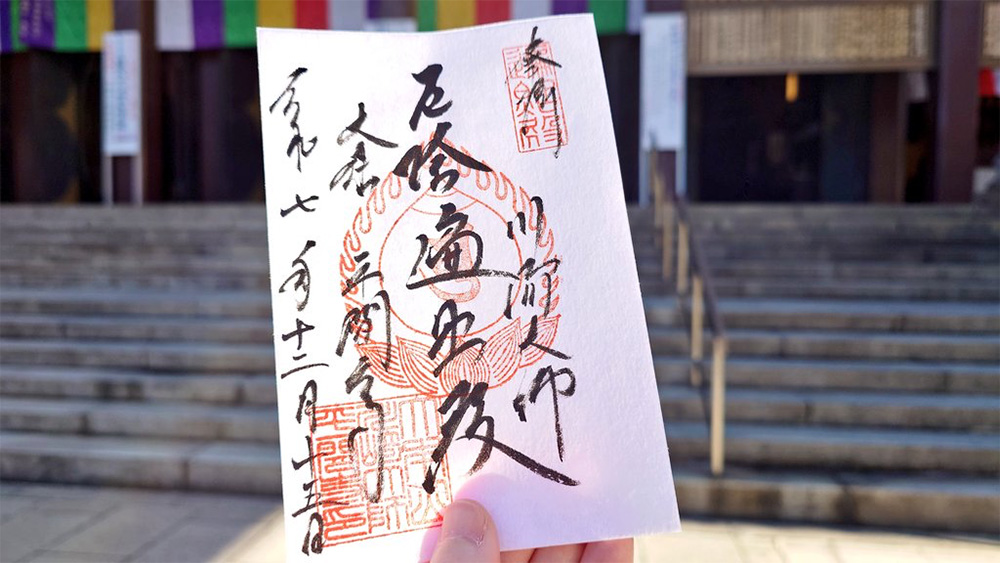 奉拝
川崎大師
厄除遍照殿
大本山 平間寺
令和七年十二月十五日